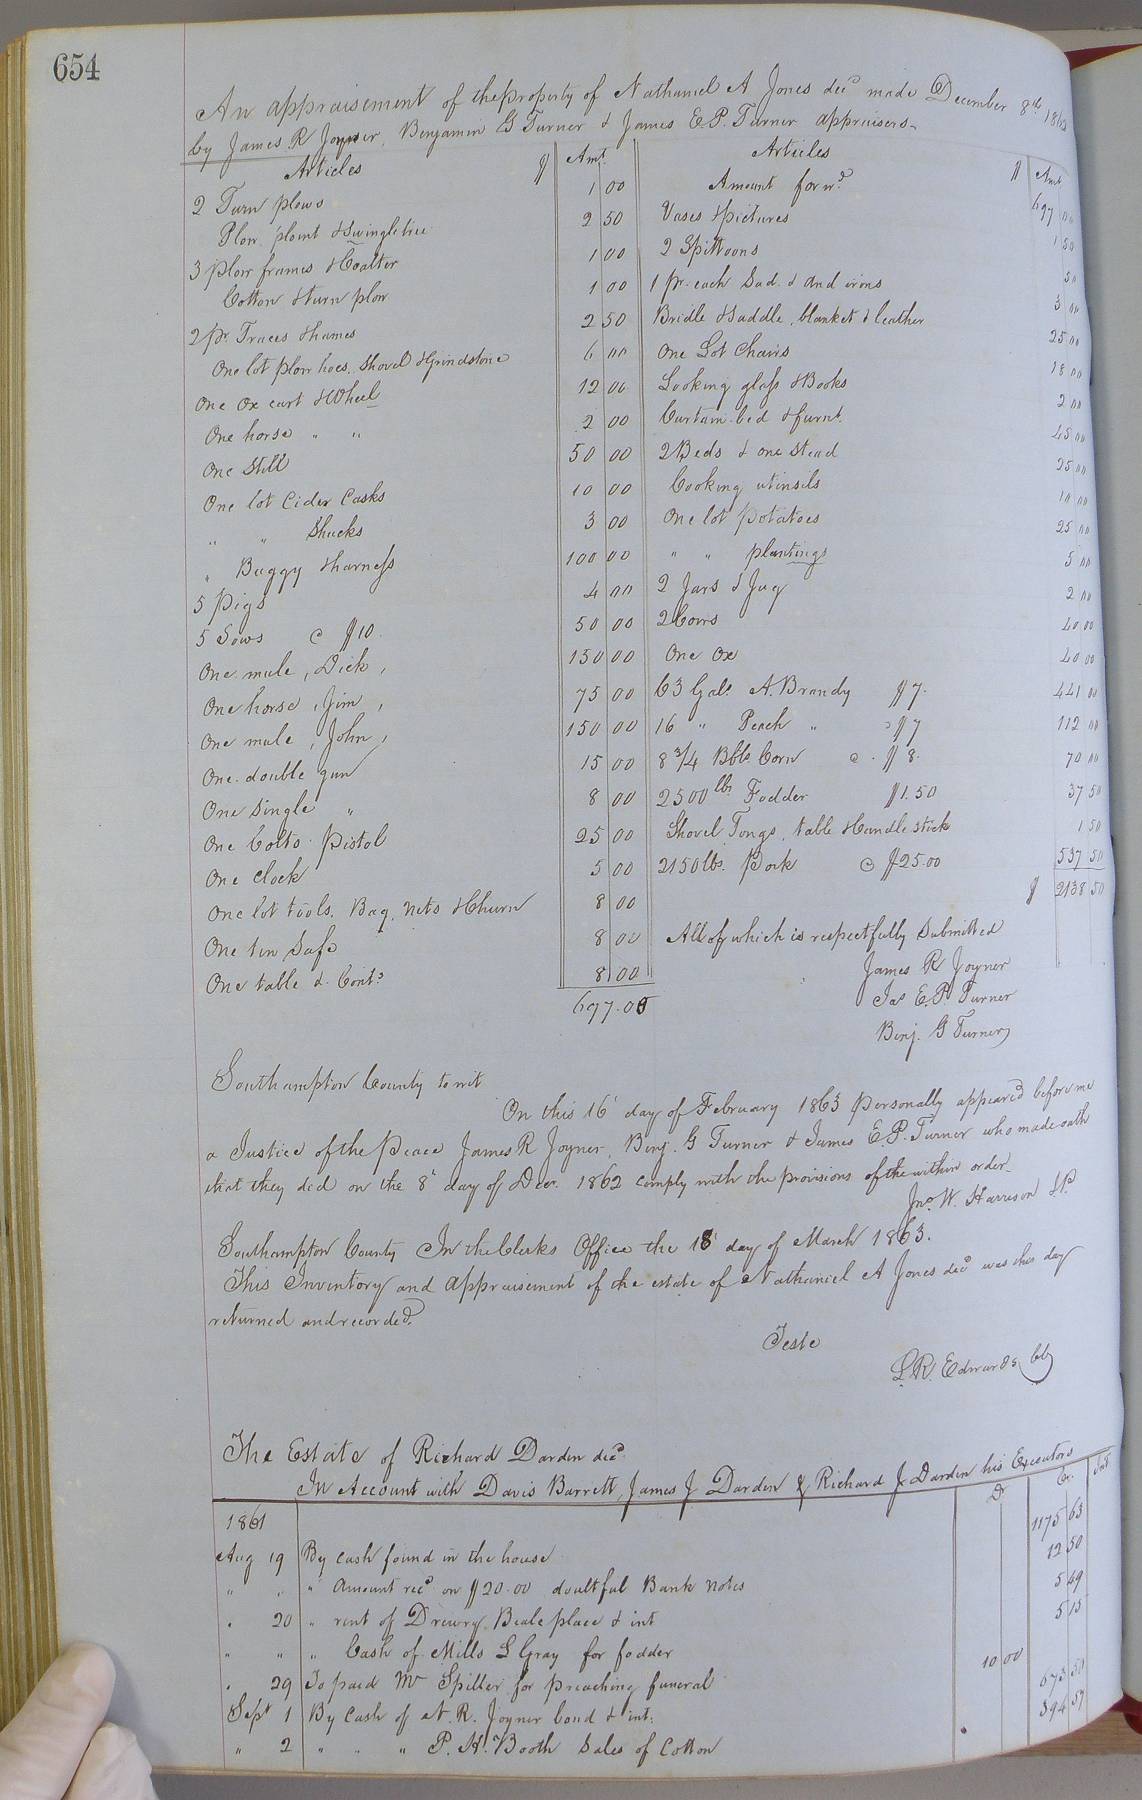 654
An appraisement of the property of Nathaniel A Jones decd made December 8th 1862
by James R Joyner, Benjamin G Turner & James E.P. Turner appraisers
Articles $ Amt
2 Turn plows 1 00
Plow point & Swingletree 2 50
3 plow frames & Coalter 1 00
Cotton & turn plow 1 00
2 pr Traces & hames 2 50
One lot plow hoes, Shovel & Grindstone 6 00
One Ox cart & Wheel 12 00
One horse " " 2 00
One Still 50 00
One lot Cider Casks 10 00
" " Shucks 3 00
" Buggy & harness 100 00
5 Pigs 4 00
5 Sows @ $10 50 00
One mule, Dick, 150 00
One horse, Jim, 75 00
One mule, John, 150 00
One double gun 15 00
One Single " 8 00
One Colts Pistol 25 00
One Clock 5 00
One lot tools, Bag, nets & Churn 8 00
One tin Safe 8 00
One table & Conts 8 00
697.00
Articles $ Amt
Amount forwd 697 00
Vases & pictures 1 50
2 Spittoons 50
1 pr. each Sad & And irons 3 00
Bridle & Saddle, blanket & leather 25 00
One Lot Chairs 18 00
Looking glass & Books 2 00
Curtain bed & furnt. 45 00
2 Beds & one Stead 25 00
Cooking utinsils 10 00
One lot Potatoes 25 00
" " plantings 5 00
2 Jars & Jug 2 00
2 Cows 40 00
One Ox 40 00
63 Gals A. Brandy $7. 441 00
16 " Peach " $7 112 00
8 3/4 Bbls Corn @ $8. 70 00
2500 lbs Fodder $1.50 37 50
Shovel Tongs, table & Candle stick 1 50
2150 lbs. Pork @ $25.00 537 50
$ 2138 50
All of which is respectfully Submitted
James R Joyner
Jas E.P. Turner
Benj. G Turner
Southampton County to wit
On this 16 day of February 1863 personally appeared before me
a Justice of the Peace James R Joyner, Benj. G Turner & James E.P. Turner who made oath
that they did on the 8 day of Decr. 1862 comply with the provisions of the within order
Jno. W. Harrison J.P.
Southampton County In the Clerks Office the 18 day of March 1863.
This Inventory and appraisement of the estate of Nathaniel A Jones decd was this day
returned and recorded.
Teste
L.R. Edwards Clk
The Estate of Richard Darden decd
In Account with Davis Barrett, James J Darden & Richard J Darden his Executors Dr Cr. Int
1861
Aug 19 By cash found in the house 1175 63
" " " Amount recd on $20.00 doubtful Bank notes 12 50
" 20 " rent of Drewry Beale place & int 5 49
" " " Cash of Mills L Gray for fodder 5 15
" 29 To paid Mr Spiller for preaching funeral 10 00
Sept 1 By Cash of N. R. Joyner bond & int. 673 50
" 2 " " " P. H. Booth Sales of Cotton 394 57